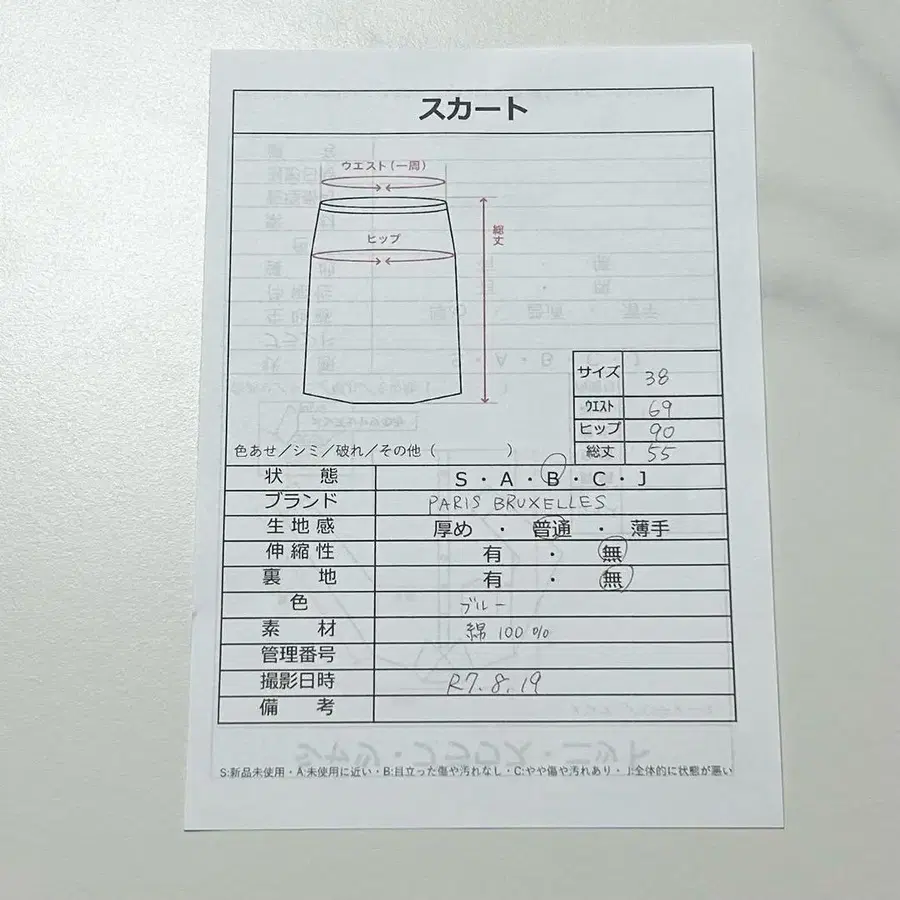 スカート
ウエスト(一周)
ヒップ
総丈
サイズ 38
ウエスト 69
ヒップ 90
総丈 55
色あせ／シミ／破れ／その他（　　　）
状　態 S・A・B・C・J
ブランド PARIS BRUXELLES
生地感 厚め ・ 普通 ・ 薄手
伸縮性 有 ・ 無
裏　地 有 ・ 無
色 ブルー
素　材 綿 100%
管理番号
撮影日時 R7.8.19
備　考
S:新品未使用・A:未使用に近い・B:目立った傷や汚れなし・C:やや傷や汚れあり・J:全体的に状態が悪い